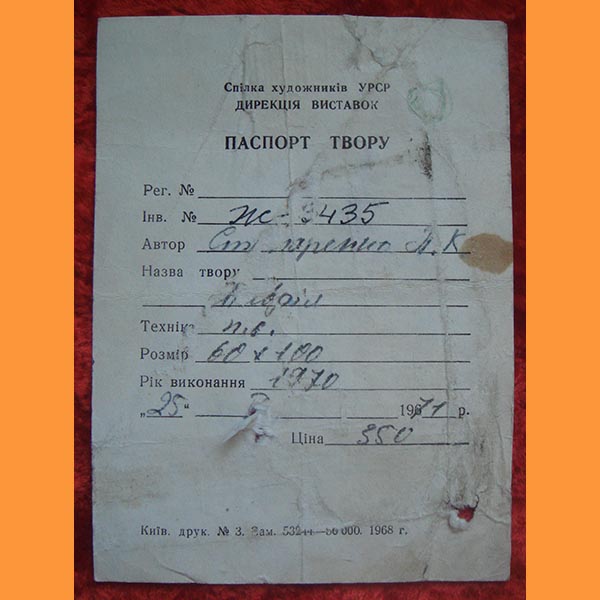 Спілка художників УРСР
ДИРЕКЦІЯ ВИСТАВОК
ПАСПОРТ ТВОРУ
Рег. №
Інв. № Ж-3435
Автор А.К
Назва твору
Техніка п.о.
Розмір 60 х 100
Рік виконання 1970
„25“ 1971 р.
Ціна 350
Київ. друк. № 3. Зам. 1968 г.